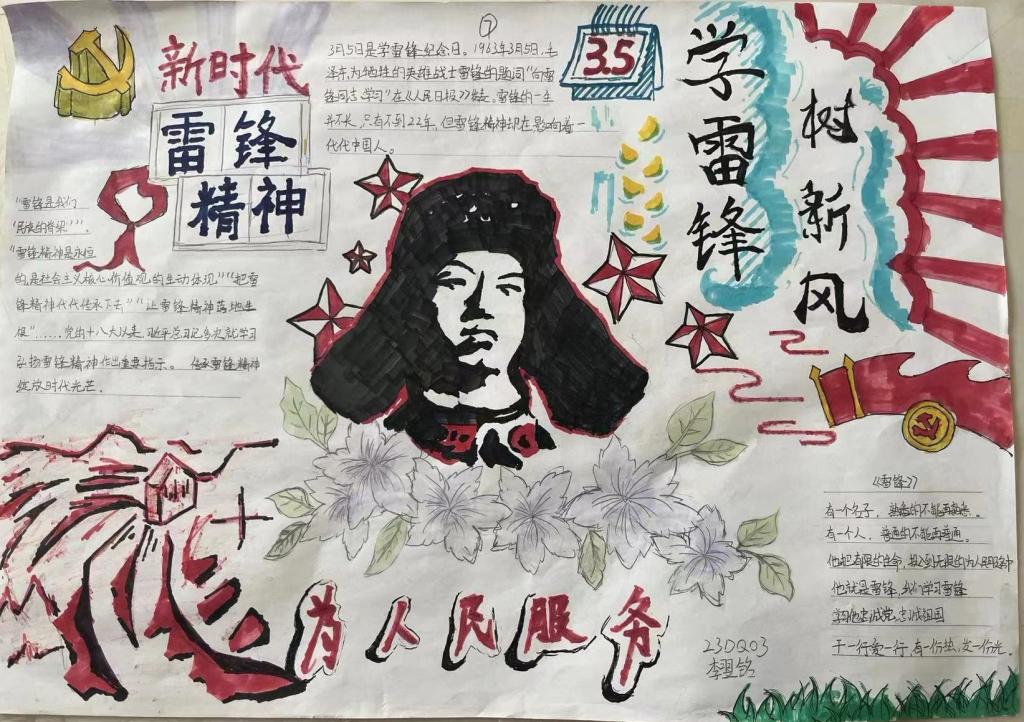 ⑦
新时代
雷锋
精神
3月5日是学雷锋纪念日。1963年3月5日,毛
泽东为牺牲的英雄战士雷锋的题词“向雷
锋同志学习”在《人民日报》发表。雷锋的一生
并不长,只有不到22年,但雷锋精神却在影响着一
代代中国人。
3.5
学雷锋
树新风
“雷锋是我们
“民族的脊梁”’。
“雷锋精神是永恒
的是社会主义核心价值观的生动体现”“把雷
锋精神代代传承下去”“让雷锋精神落地生
根”……党的十八大以来,近平总书记多次就学习
弘扬雷锋精神作出重要指示。 传承雷锋精神
绽放时代光芒。
《雷锋》
有一个名子,熟悉的不能再熟悉。
有一个人,普通的不能再普通。
他把有限的生命,投入到无限的为人民服务中
他就是雷锋,我们学习雷锋
学习他忠诚党忠诚祖国
干一行爱一行,有一份热,发一份光。
为人民服务
23DQ03